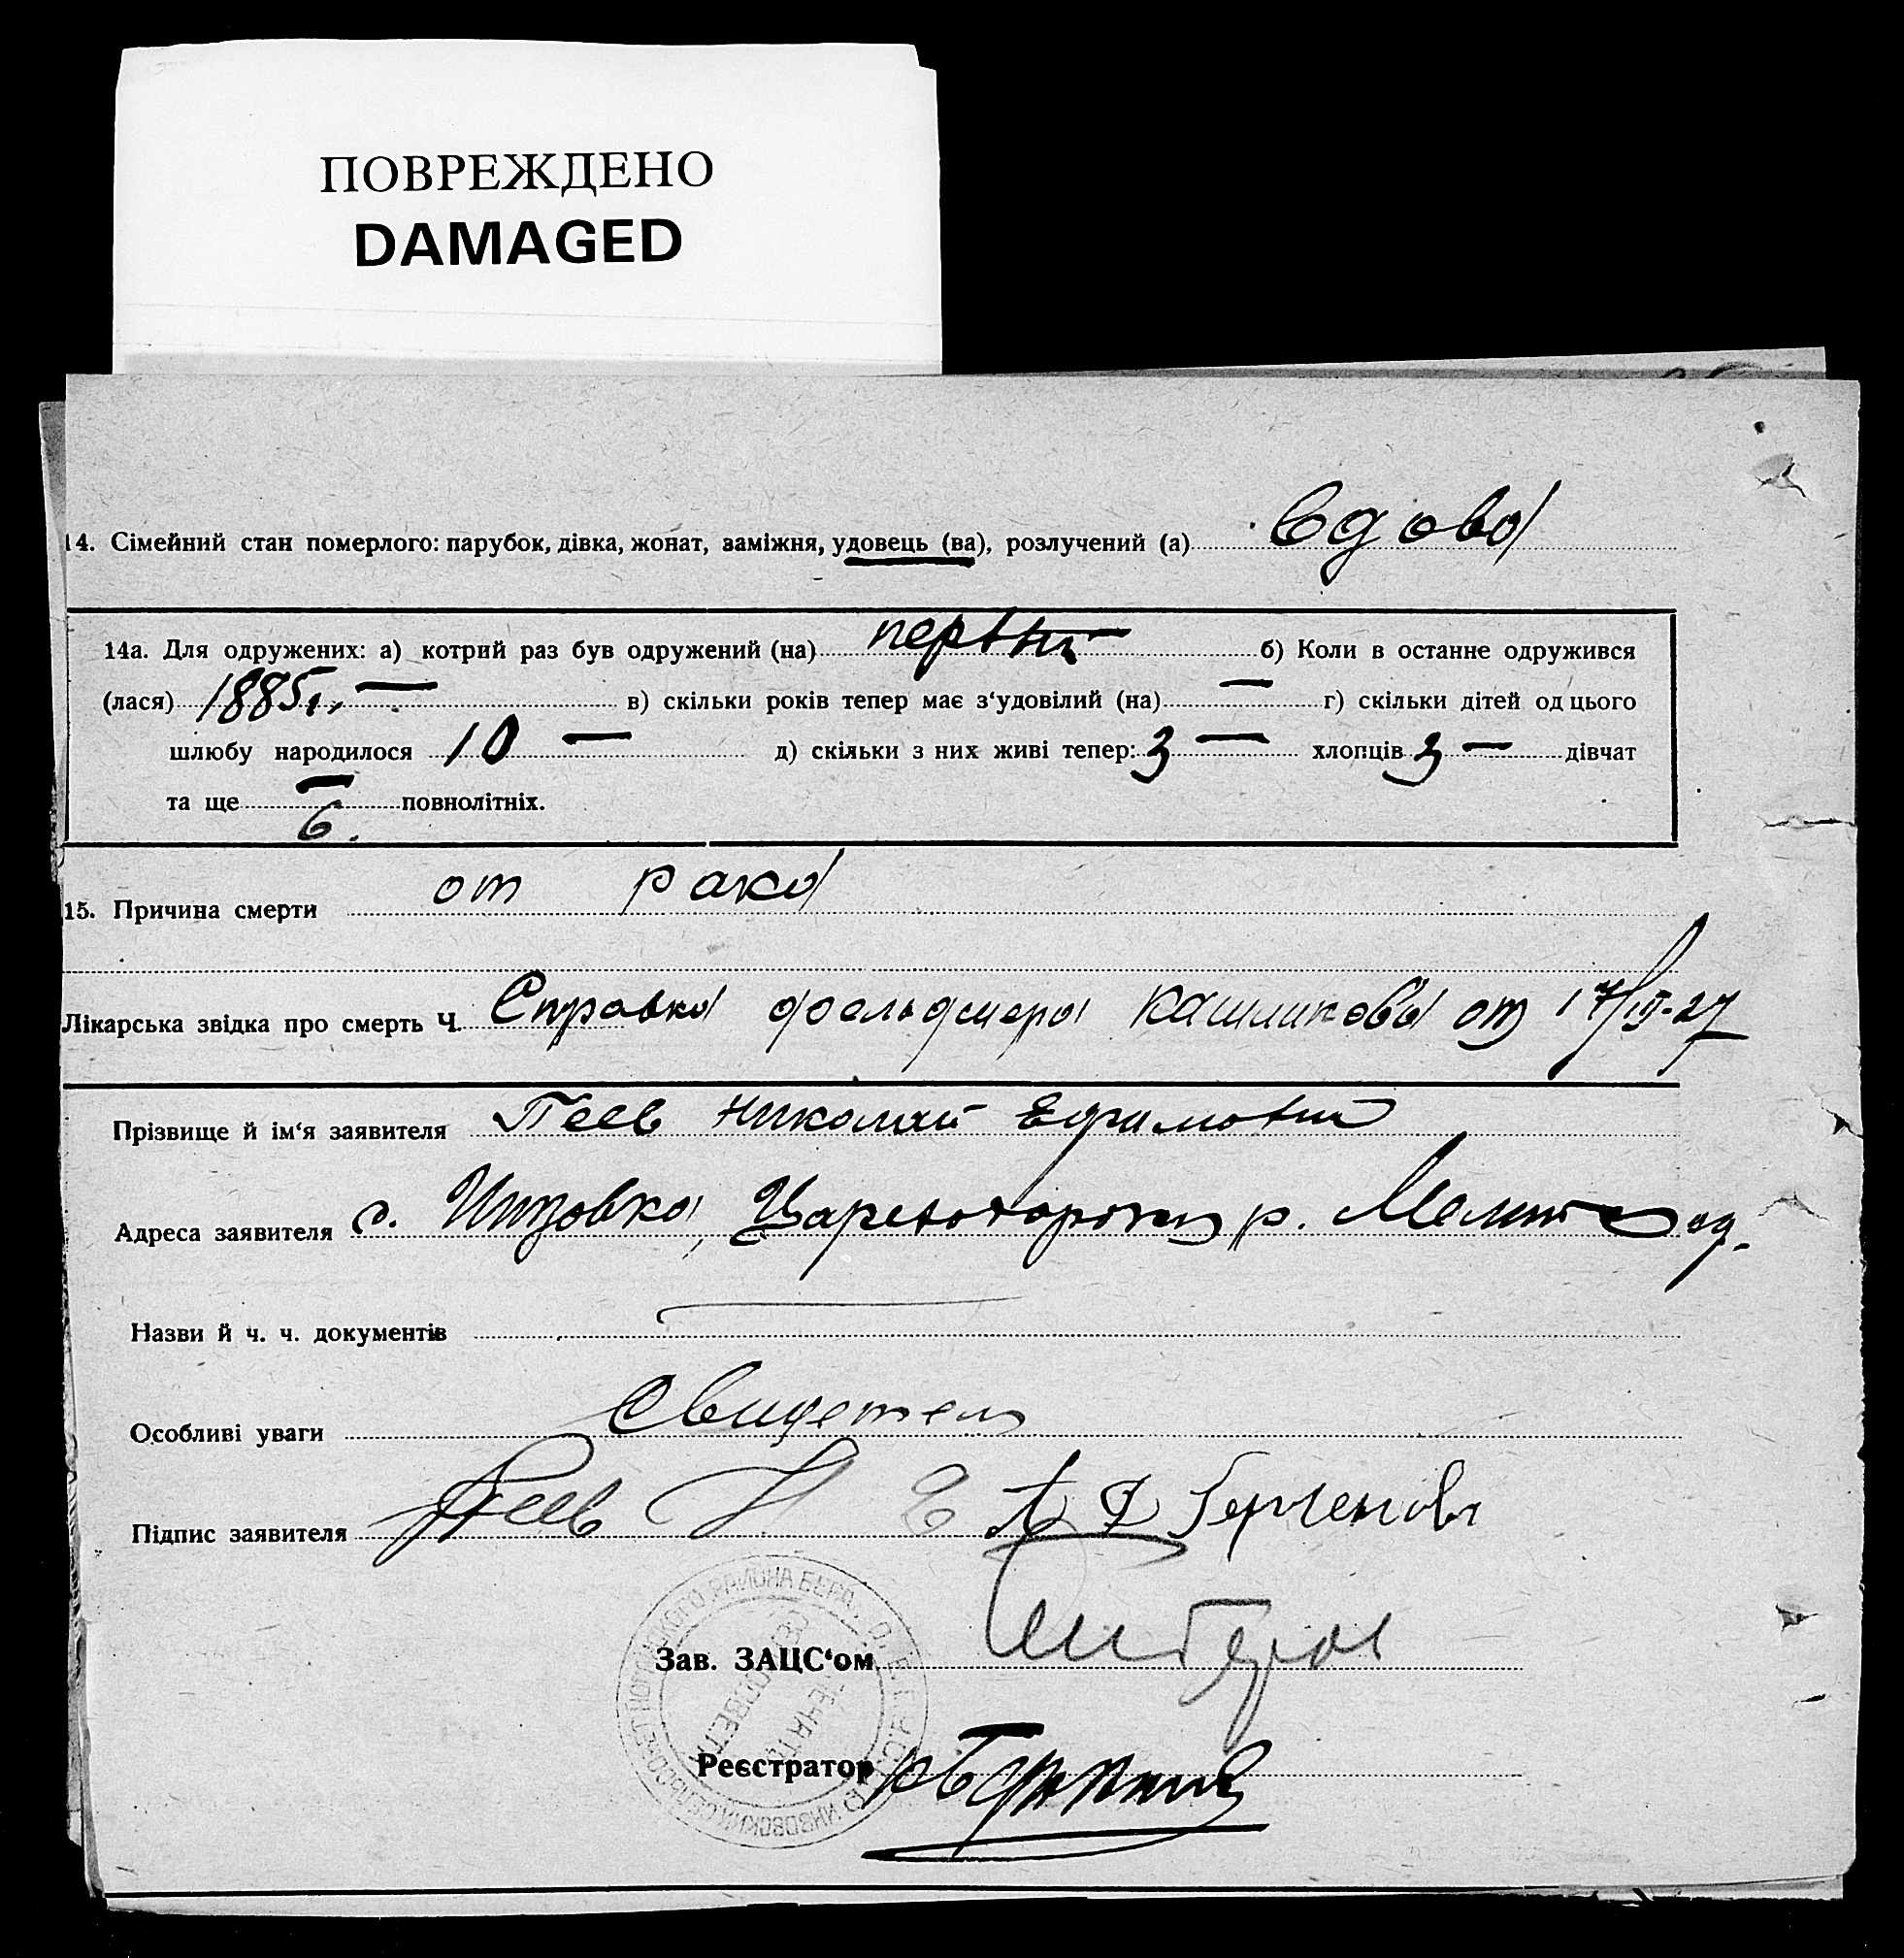 ПОВРЕЖДЕНО
DAMAGED
14. Сімейний стан померлого: парубок, дівка, жонат, заміжня, удовець (ва), розлучений (а) Вдова
14а. Для одружених: а) котрий раз був одружений (на) первый б) Коли в останне одружився
(лася) 1885г. — в) скільки років тепер має з‘удовілий (на) — г) скільки дітей од цього
шлюбу народилося 10 — д) скільки з них живі тепер: 3 — хлопців 3 — дівчат
та ще — 6. повнолітніх.
15. Причина смерти от рака
Лікарська звідка про смерть Ч. Справка фельдшера от 17/
Прізвище й ім‘я заявителя Пеев Николай Ефимович
Адреса заявителя с. р. Мелит
Назви й ч. ч. документів —
Особливі уваги Свидетель
Підпис заявителя Пеев Н Е
Зав. ЗАЦС‘ом
Реєстратор